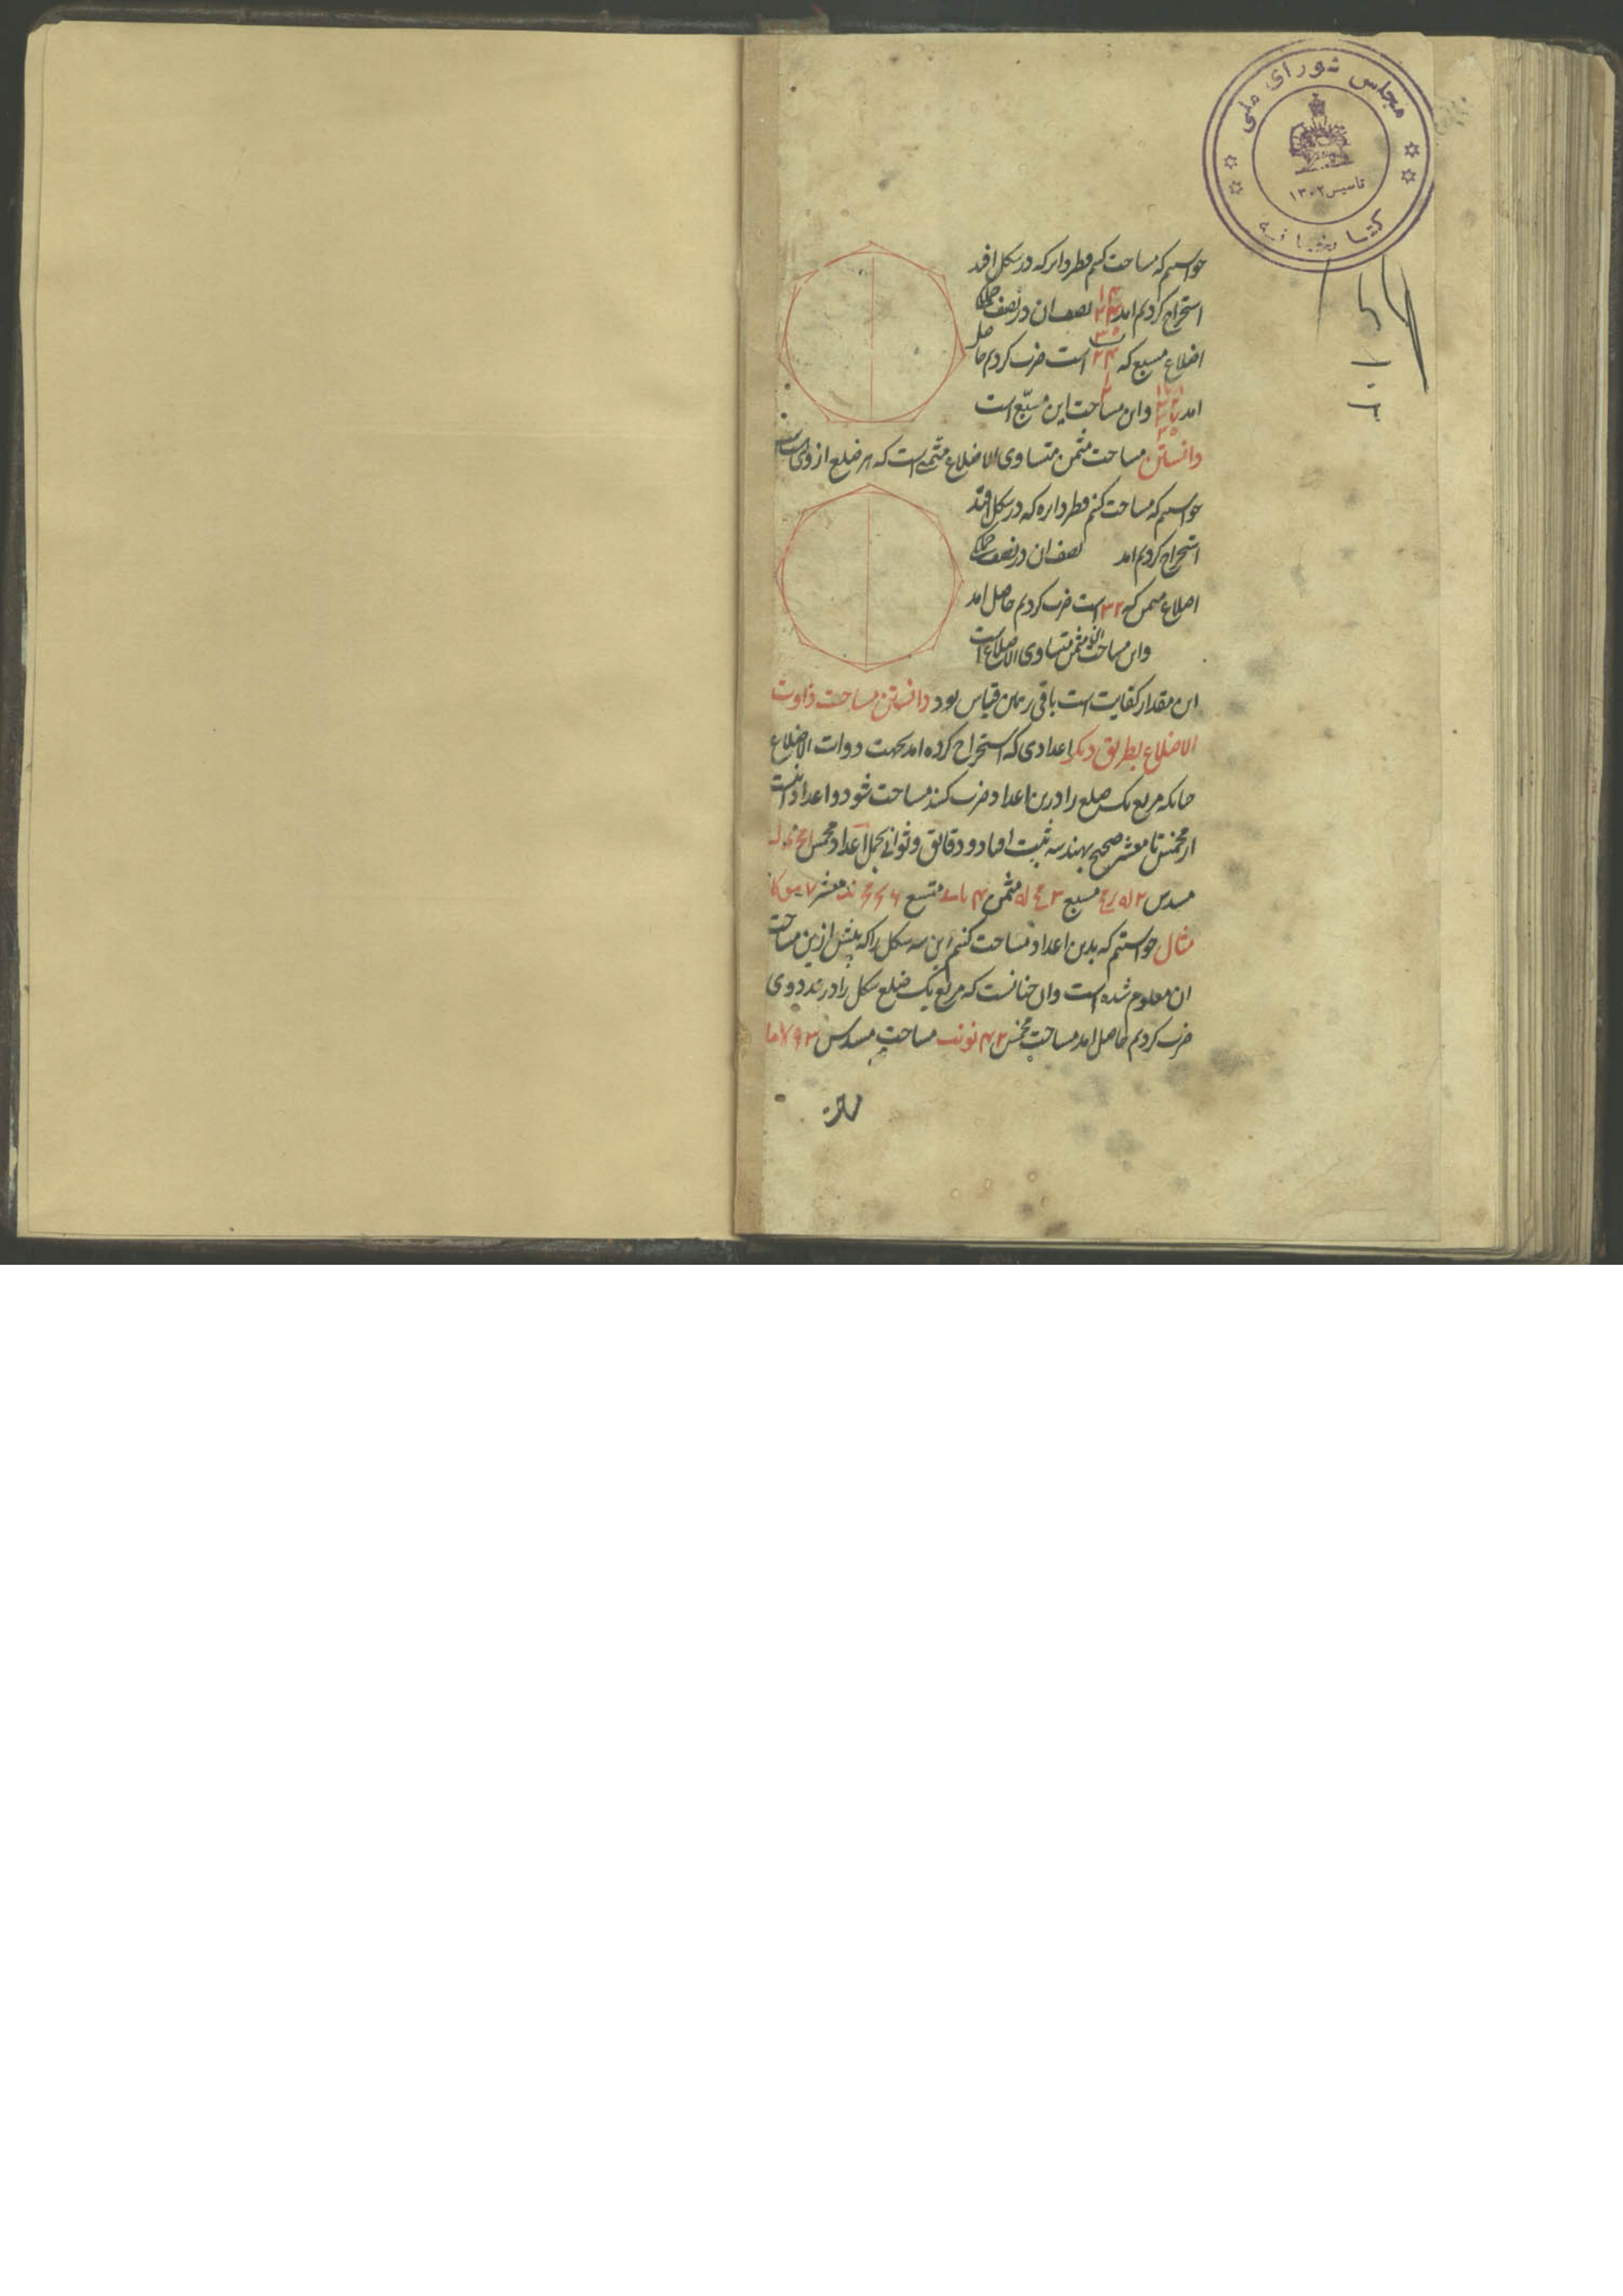 مجلس شورای ملی
تاسیس ۱۳۰۲
کتابخانه
خواستیم که مساحت کنیم قطر دایره که در شکل افتد
استخراج کردیم امد نصف ان در نصف
اضلاع مسبع که است ضرب کردیم حاصل
امد واین مساحت این مسبّع است
دانستن مساحت مثمن متساوی الاضلاع مثمنی است که هر ضلع از وی
خواستیم که مساحت کنیم قطر دایره که در شکل افتد
استخراج کردیم امد نصف ان در نصف
اضلاع مثمن که ۳۲ است ضرب کردیم حاصل امد
واین مساحت مثمن متساوی الاضلاع است
این مقدار کفایت است باقی برین قیاس بود دانستن مساحت ذوات
الاضلاع بطریق دیگر اعدادی که استخراج کرده اند بجهت ذوات الاضلاع
چنانکه مربع یک ضلع را درین اعداد ضرب کنند مساحت شود و اعداد اینست
از مخمس تا معشر صحیح بهندسه ثبت افتاد و دقایق و ثوانی بجمل اعداد مخمس
مسدس ۲ مسبع ۳ مثمن ۴ متسع ۶ معشر ۷
مثال خواستیم که بدین اعداد مساحت کنیم این سه شکل را که پیش ازین مساحت
ان معلوم شده است وان چنانست که مربع یک ضلع شکل را در عدد وی
ضرب کردیم حاصل امد مساحت مخمس ۴۲ مساحت مسدس ۹۳